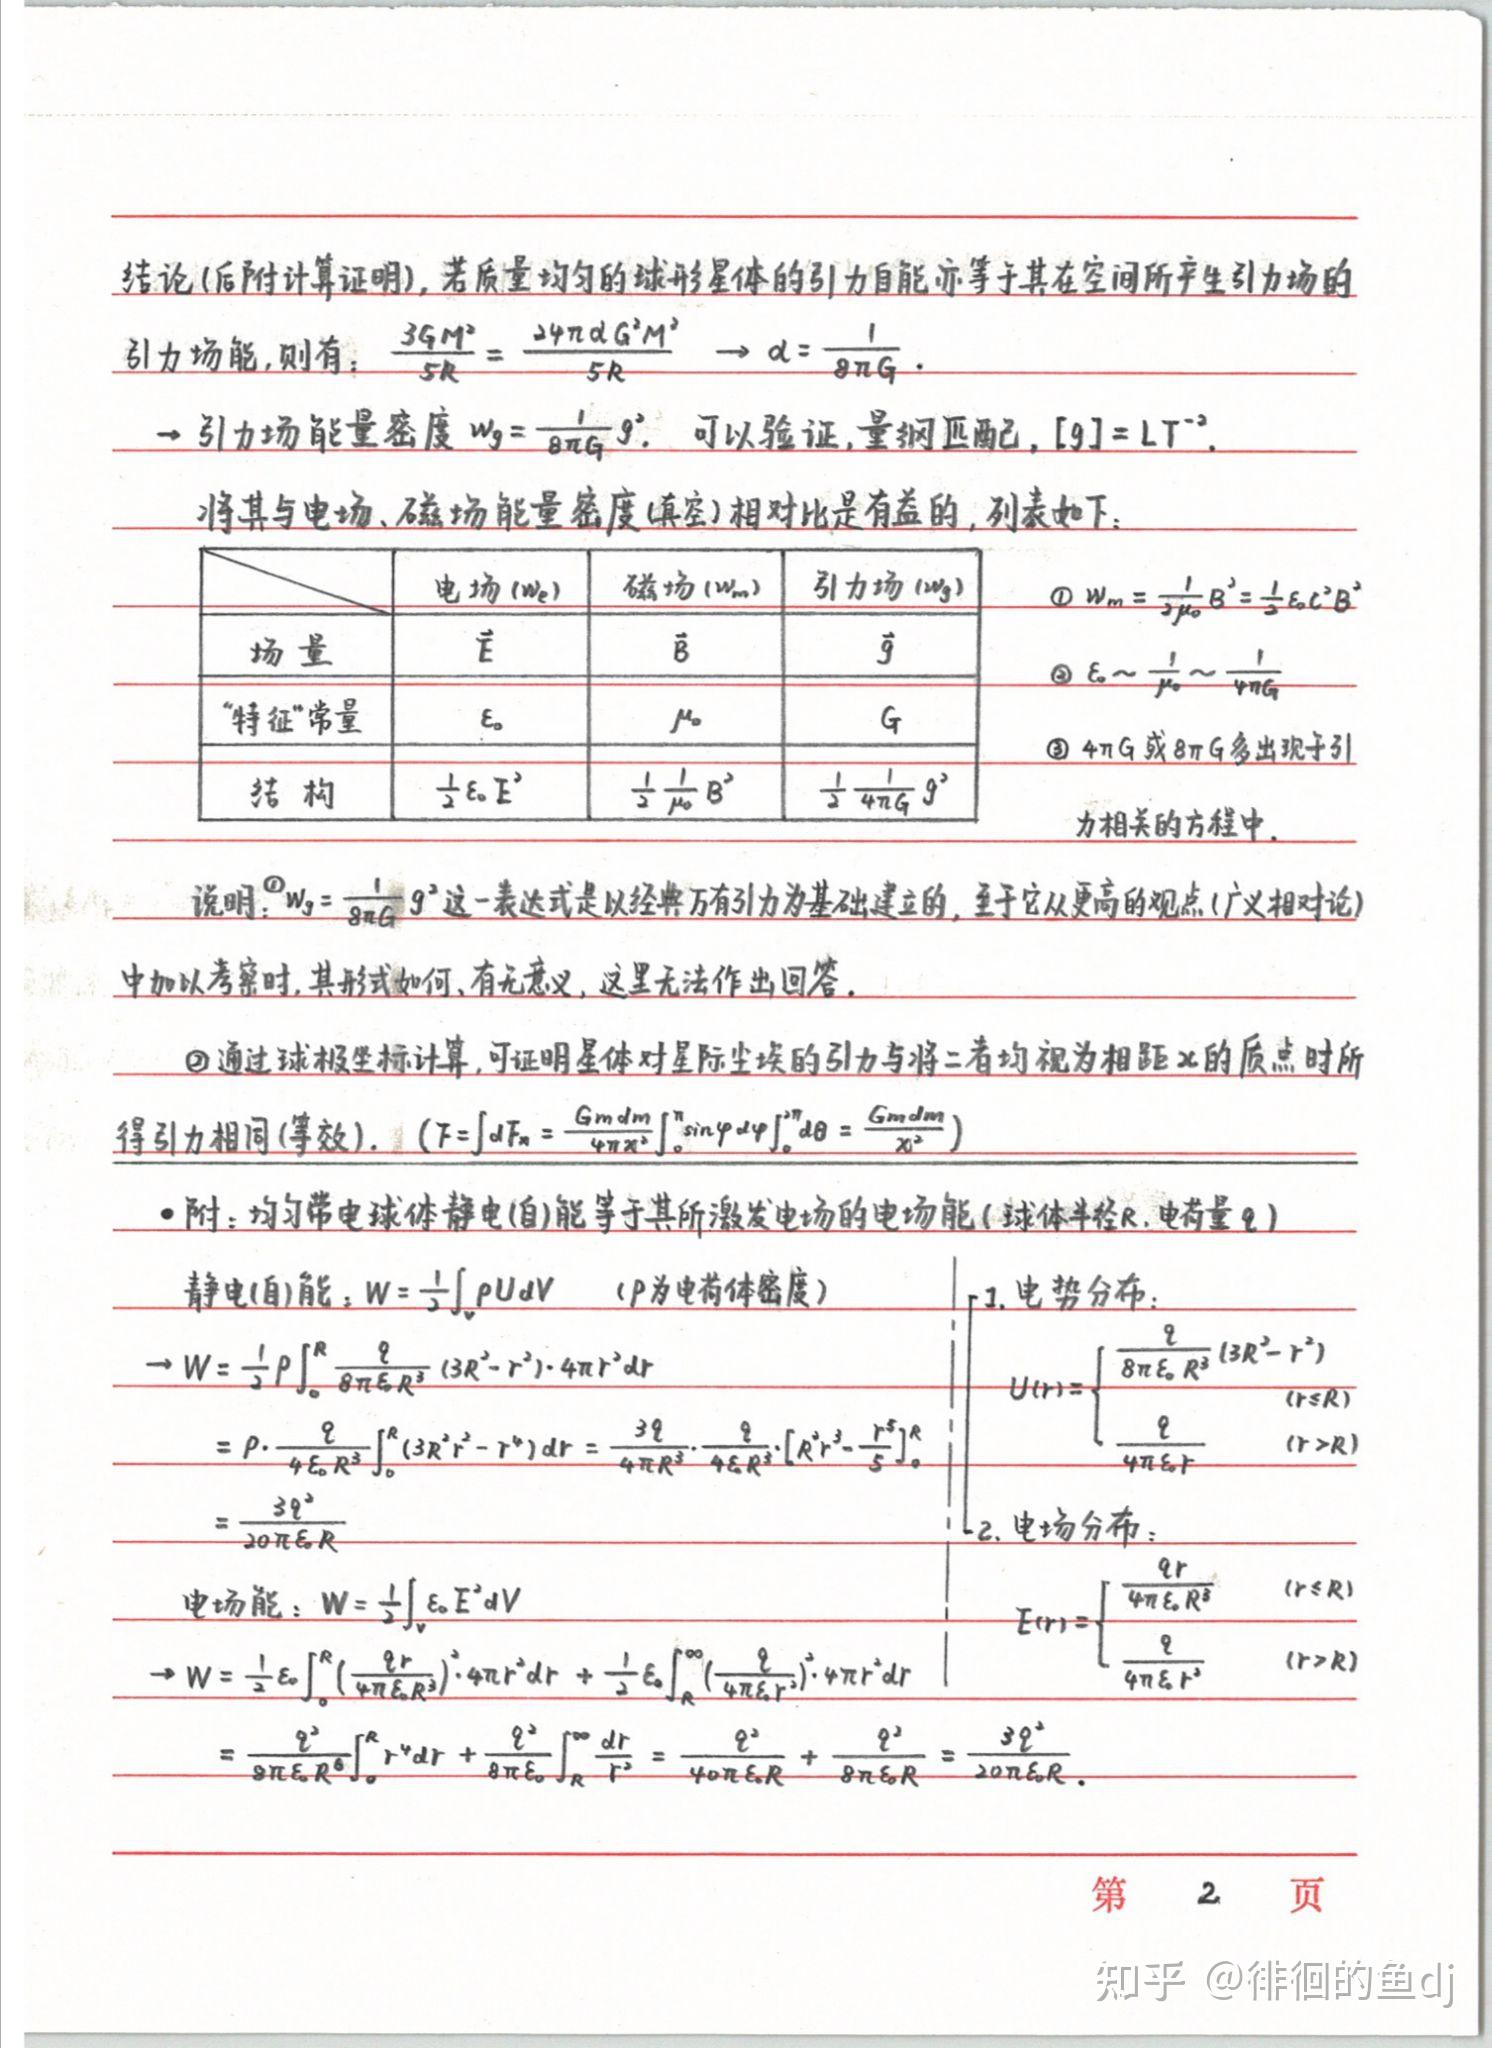 结论(后附计算证明), 若质量均匀的球形星体的引力自能亦等于其在空间所产生引力场的
引力场能, 则有: 3GM²/5R = 24παG²M²/5R → α = 1/8πG.
→ 引力场能量密度 Wg = 1/8πG g². 可以验证, 量纲匹配, [g] = LT⁻².
将其与电场、磁场能量密度(真空)相对比是有益的, 列表如下:
电场(We) 磁场(Wm) 引力场(Wg)
场量 E⃗ B⃗ g⃗
"特征"常量 ε₀ μ₀ G
结构 1/2 ε₀E² 1/2 1/μ₀ B² 1/2 1/4πG g²
① Wm = 1/2μ₀ B² = 1/2 ε₀c²B²
② ε₀ ~ 1/μ₀ ~ 1/4πG
③ 4πG或8πG多出现于引
力相关的方程中.
说明: ①Wg = 1/8πG g² 这一表达式是以经典万有引力为基础建立的, 至于它从更高的观点(广义相对论)
中加以考察时, 其形式如何、有无意义, 这里无法作出回答.
②通过球极坐标计算, 可证明星体对星际尘埃的引力与将二者均视为相距x的质点时所
得引力相同(等效). (F = ∫dFₓ = Gmdm/4πx² ∫₀^π sinφdφ ∫₀^2π dθ = Gmdm/x²)
• 附: 均匀带电球体静电(自)能等于其所激发电场的电场能(球体半径R, 电荷量q)
静电(自)能: W = 1/2 ∫ᵥ ρUdV (ρ为电荷体密度)
→ W = 1/2 ρ ∫₀^R q/8πε₀R³ (3R²-r²)·4πr²dr
= ρ· q/4ε₀R³ ∫₀^R (3R²r²-r⁴)dr = 3q/4πR³ · q/4ε₀R³ ·[R²r³ - r⁵/5]₀^R
= 3q²/20πε₀R
电场能: W = 1/2 ∫ᵥ ε₀E²dV
→ W = 1/2 ε₀ ∫₀^R (qr/4πε₀R³)²·4πr²dr + 1/2 ε₀ ∫_R^∞ (q/4πε₀r²)²·4πr²dr
= q²/8πε₀R⁶ ∫₀^R r⁴dr + q²/8πε₀ ∫_R^∞ dr/r² = q²/40πε₀R + q²/8πε₀R = 3q²/20πε₀R.
1. 电势分布:
U(r) = { q/8πε₀R³ (3R²-r²) (r≤R)
q/4πε₀r (r>R)
2. 电场分布:
E(r) = { qr/4πε₀R³ (r≤R)
q/4πε₀r² (r>R)
第 2 页
知乎 @徘徊的鱼dj